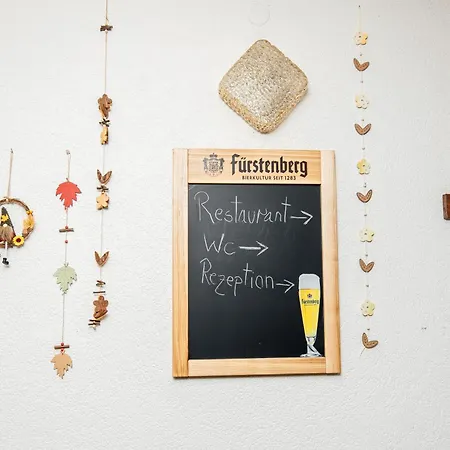 Fürstenberg
BIERKULTUR SEIT 1283
Restaurant →
Wc →
Rezeption →
Fürstenberg